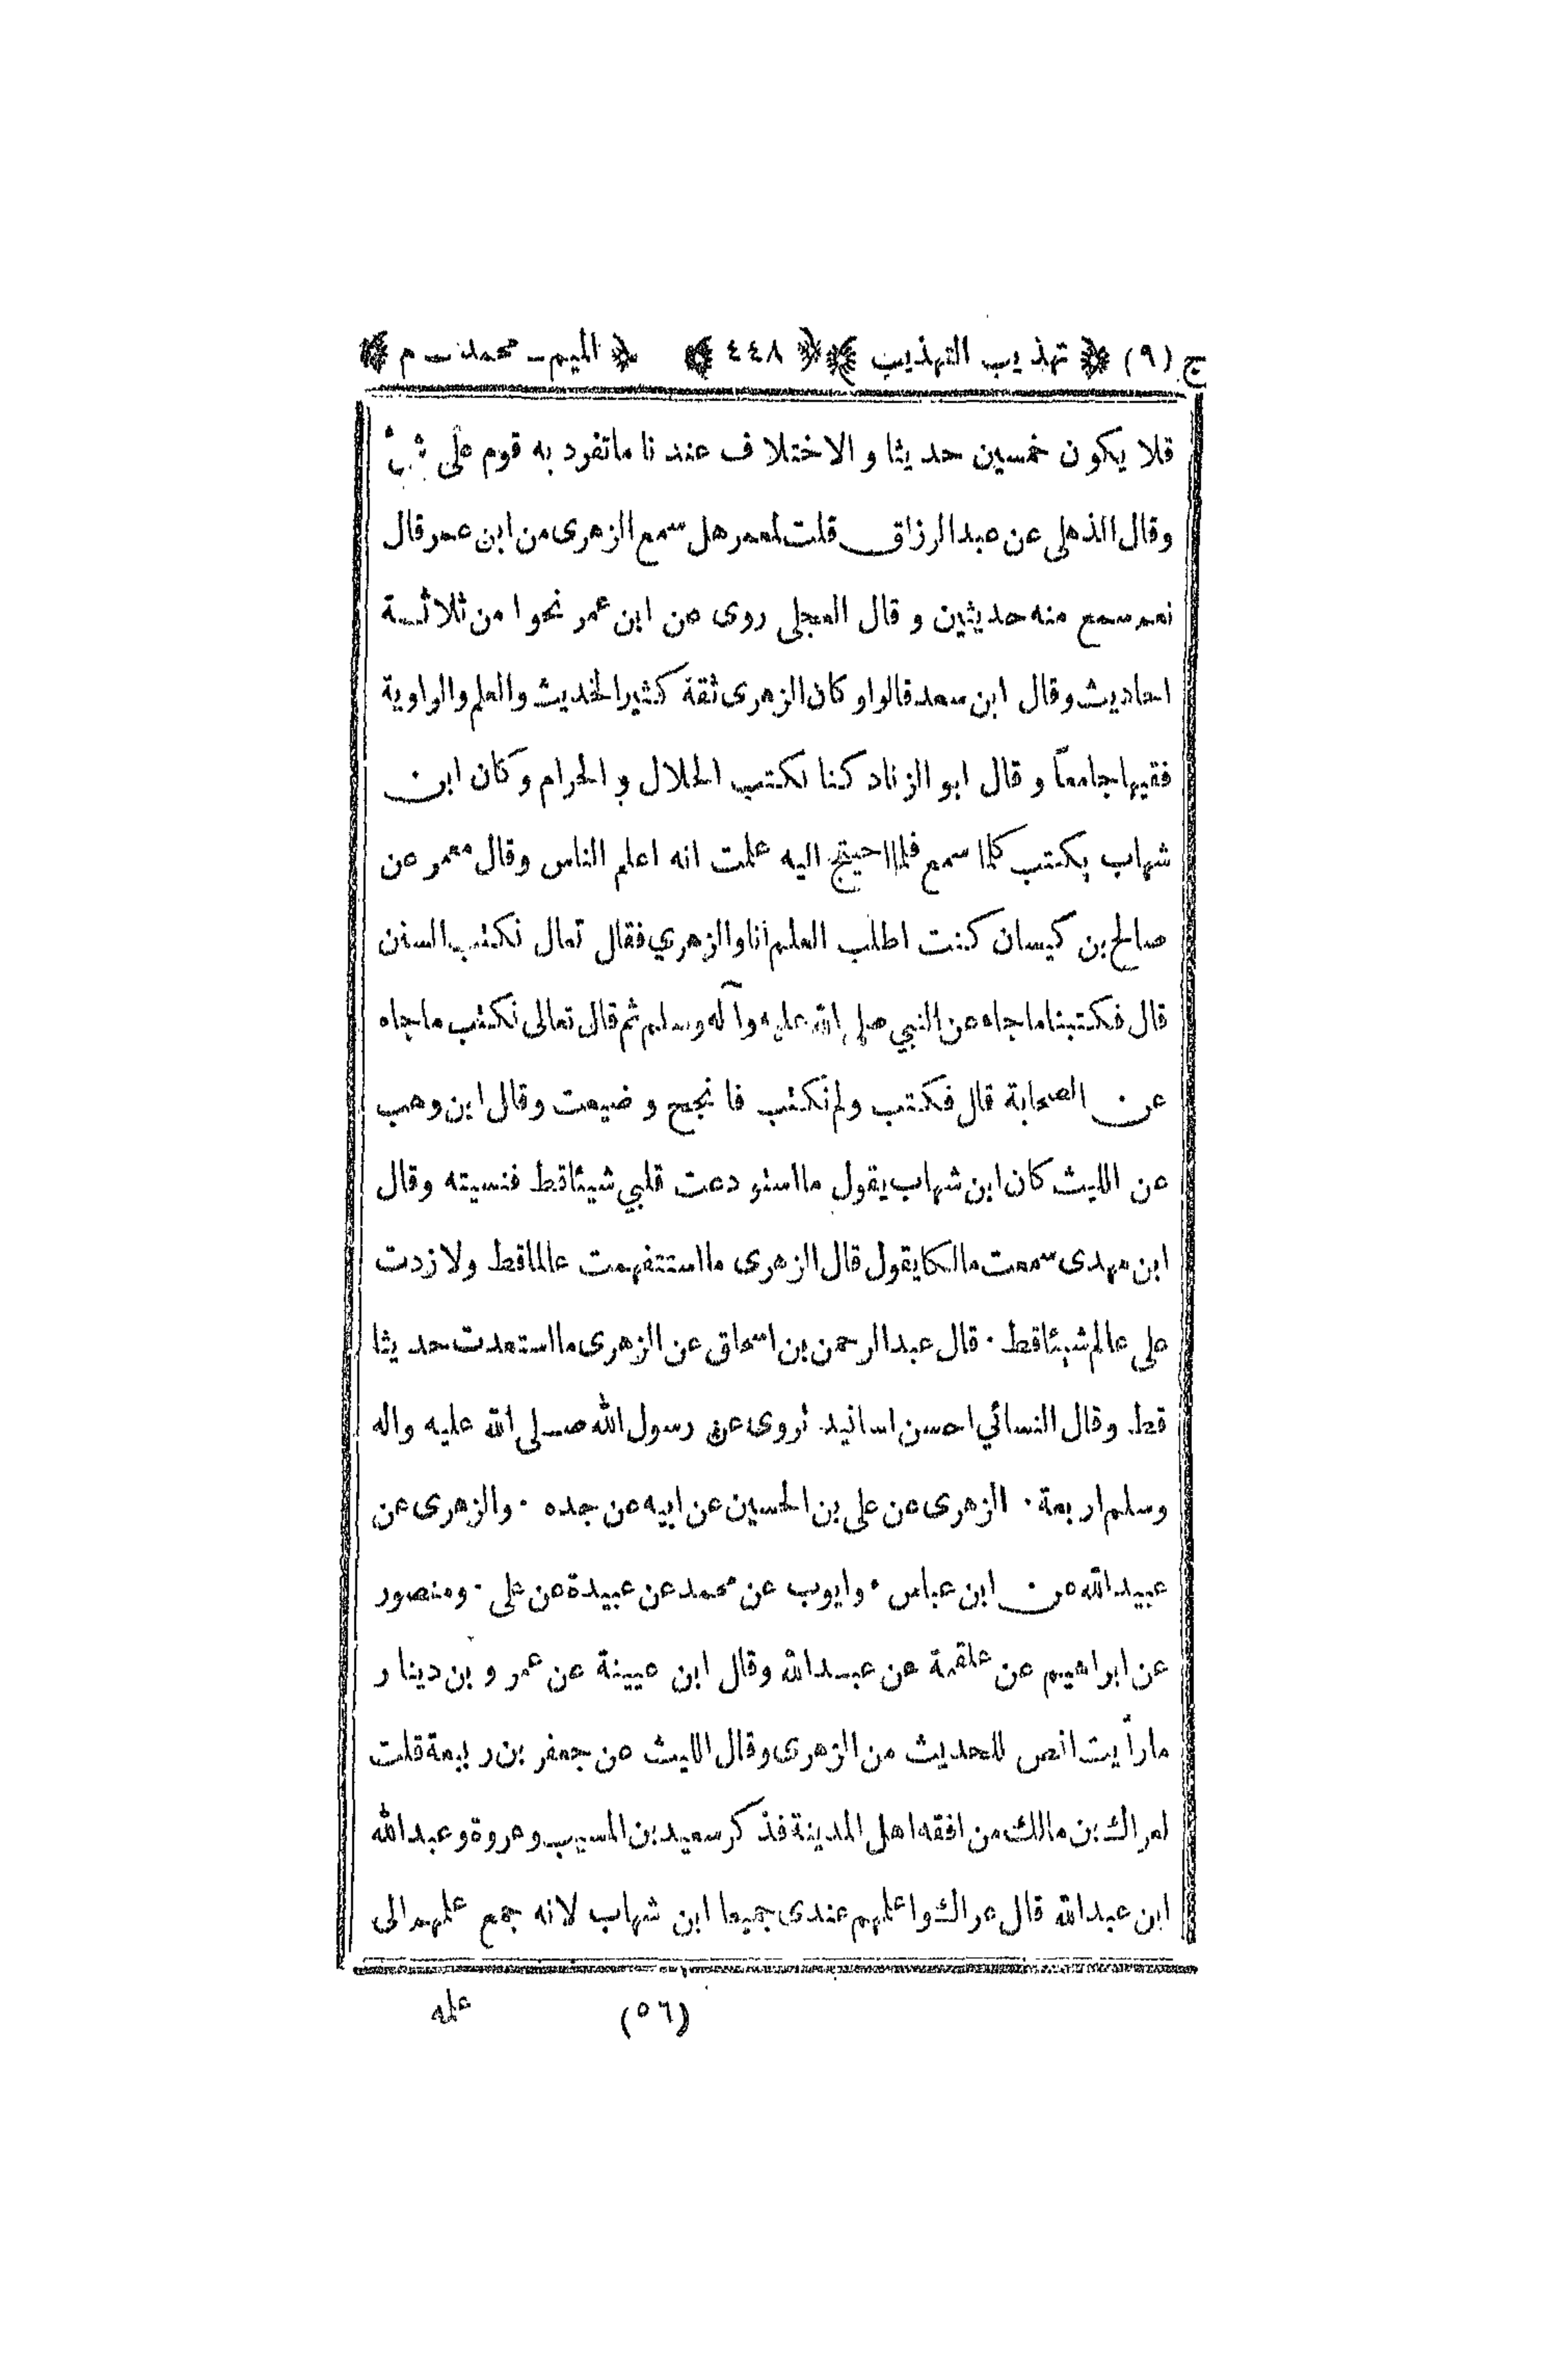 ج (٩) ﴿ تهذيب التهذيب ﴾ ﴿ ٤٤٨ ﴾ ﴿ الميم ـ محمد ـ م ﴾
فلا يكون خمسين حديثا و الاختلاف عندنا ماتفرد به قوم على شئ
وقال الذهلى عن عبدالرزاق قلت لمعمر هل سمع الزهرى من ابن عمر قال
نعم سمع منه حديثين و قال العجلى روى عن ابن عمر نحوا من ثلاثة
احاديث وقال ابن سعد قالوا و كان الزهرى ثقة كثير الحديث والعلم والرواية
فقيها جامعاً و قال ابو الزناد كنا نكتب الحلال و الحرام و كان ابن
شهاب يكتب كلما سمع فلما احتيج اليه علمت انه اعلم الناس وقال معمر عن
صالح بن كيسان كنت اطلب العلم انا والزهري فقال تعال نكتب السنن
قال فكتبنا ما جاء عن النبي صلى الله عليه وآله وسلم ثم قال تعالى نكتب ما جاء
عن الصحابة قال فكتب ولم نكتب فانجح و ضيعت وقال ابن وهب
عن الليث كان ابن شهاب يقول ما استودعت قلبي شيئا قط فنسيته وقال
ابن مهدى سمعت مالكا يقول قال الزهرى ما استتفهمت عالما قط ولا زدت
على عالم شيئا قط ٠ قال عبد الرحمن بن اسحاق عن الزهرى ما استعدت حديثا
قط وقال النسائي احسن اسانيد تروى عن رسول الله صلى الله عليه واله
وسلم اربعة ٠ الزهرى عن على بن الحسين عن ابيه عن جده ٠ والزهرى عن
عبيدالله عن ابن عباس ٠ وايوب عن محمد عن عبيدة عن على ٠ ومنصور
عن ابراهيم عن علقمة عن عبدالله وقال ابن عيينة عن عمرو بن دينار
ما رأيت انص للحديث من الزهرى وقال الليث عن جعفر بن ربيعة قلت
لعراك بن مالك من افقه اهل المدينة فذكر سعيد بن المسيب وعروة وعبدالله
ابن عبدالله قال عراك واعلمهم عندى جميعا ابن شهاب لانه جمع علمهم الى
(٥٦) علمه